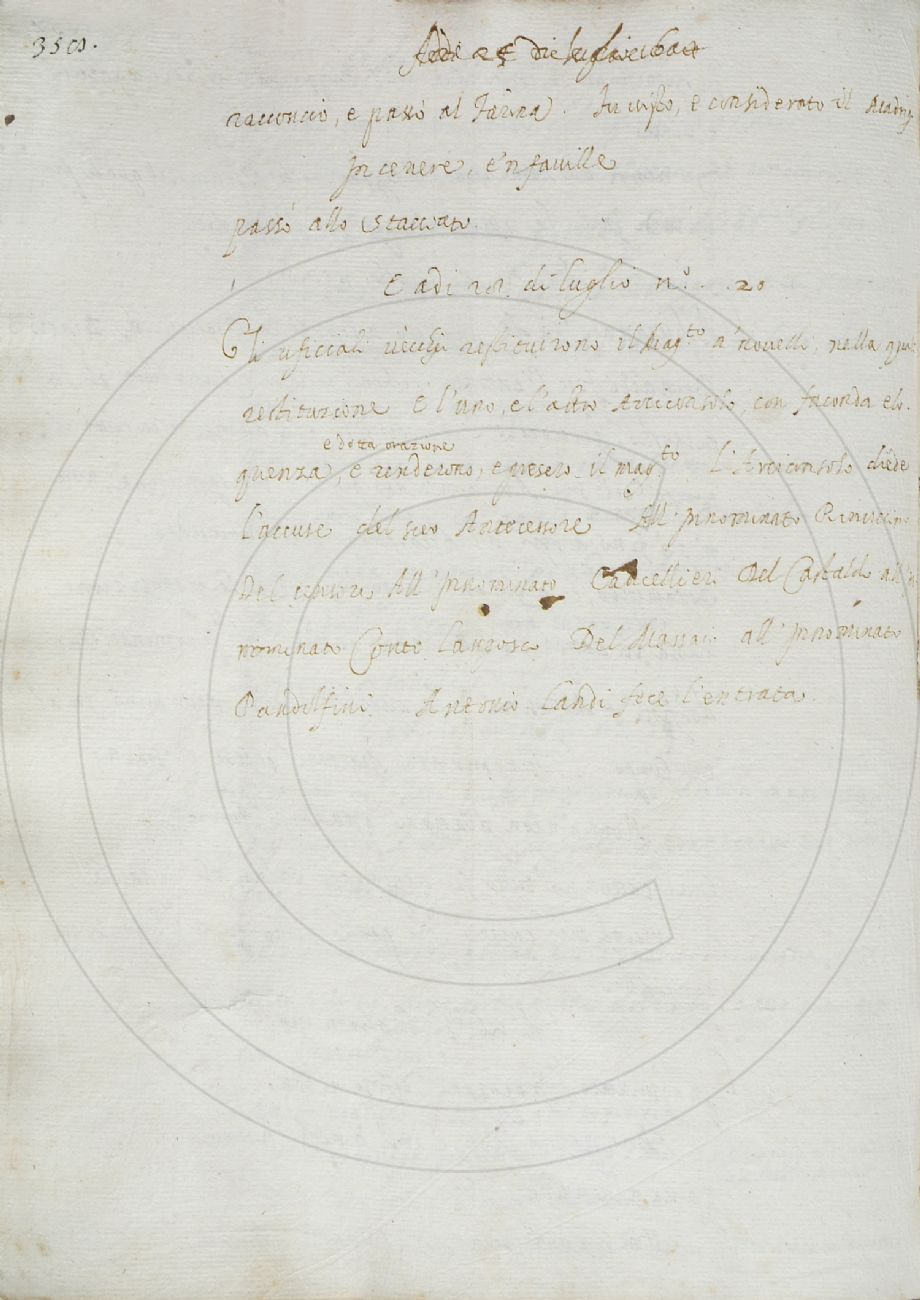 Adi 25 di luglio 1647
racconcio, e passò al Farina. Fu visto, e considerato il Madrig
In cenere, e 'n faville
passò allo Stacciato.
E adi 28. di luglio nº. . 20
Gli uficiali vecchi restituirono il Magto a' novelli, nella qual
restituzione e l'uno, e l'altro Arciconsolo, con faconda elo.
e dotta orazione
quenza, e renderono, e presero il magto L'Arciconsolo diede
l'accuse del suo Antecessore All' innominato Rinuccini
Del censore All' innominato Cancellieri Del Castaldo all' in
nominato Conte Del Massaio all' innominato
Pandolfini. Antonio Landi fece l'entrata.